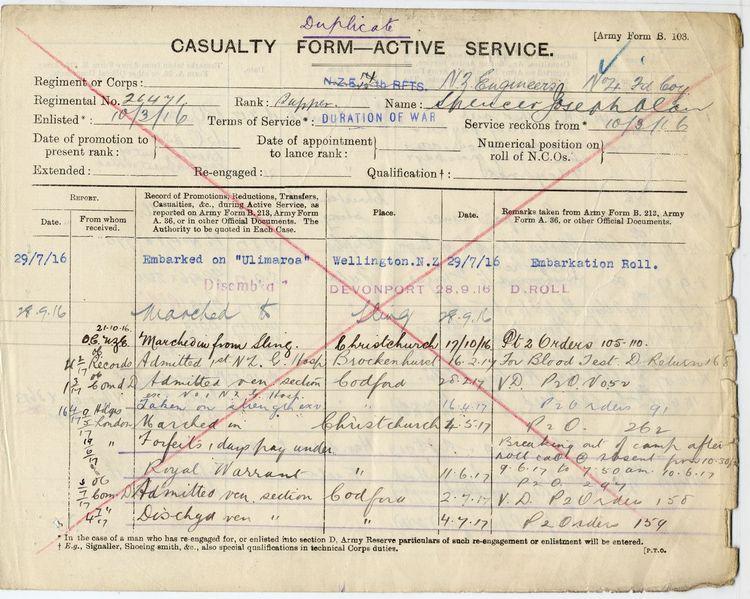 Duplicate
CASUALTY FORM—ACTIVE SERVICE.
[Army Form B. 103.
Regiment or Corps: N.Z.E. 14th RFTS. NZ Engineers No. 4 Fd Coy
Regimental No. 26471 Rank: Sapper. Name: Spencer Joseph Alan
Enlisted* : 10/3/16 Terms of Service* : DURATION OF WAR Service reckons from* 10/3/16
Date of promotion to present rank: Date of appointment to lance rank: Numerical position on roll of N.C.Os.
Extended: Re-engaged: Qualification† :
REPORT. Date. From whom received.
Record of Promotions, Reductions, Transfers, Casualties, &c., during Active Service, as reported on Army Form B. 213, Army Form A. 36, or in other Official Documents. The Authority to be quoted in Each Case.
Place. Date.
Remarks taken from Army Form B. 213, Army Form A. 36, or other Official Documents.
29/7/16 Embarked on "Ulimaroa" Wellington.N.Z 29/7/16 Embarkation Roll.
Disemb'k " DEVONPORT 28.9.16 D.ROLL
28.9.16 Marched to Sling 28.9.16
21-10-16. OC. NZE. Marched in from Sling. Christchurch 17/10/16 Pt 2 Orders 105-110.
Records Admitted 1st N.Z. G Hosp Brockenhurst 16.2.17 For Blood Test D. Return 168
OC Com D Admitted ven section Codford 28.2.17 V.D. P2O No 52
Taken on strength " 16.4.17 P2 Orders 91
Hdqs London Marched in Christchurch 4.5.17 P2O. 262
" Forfeits 1 days pay under Royal Warrant " 11.6.17 Breaking out of camp after roll call @ absent from 10.30 9.6.17 to 7.50am. 10.6.17 P2O.
OC Com D Admitted ven. section Codford 2.7.17 V.D. P2 Orders 158
" Dischgd ven " " 4.7.17 P2 Orders 159
* In the case of a man who has re-engaged for, or enlisted into section D, Army Reserve particulars of such re-engagement or enlistment will be entered.
† E.g., Signaller, Shoeing smith, &c., also special qualifications in technical Corps duties.
[P.T.O.